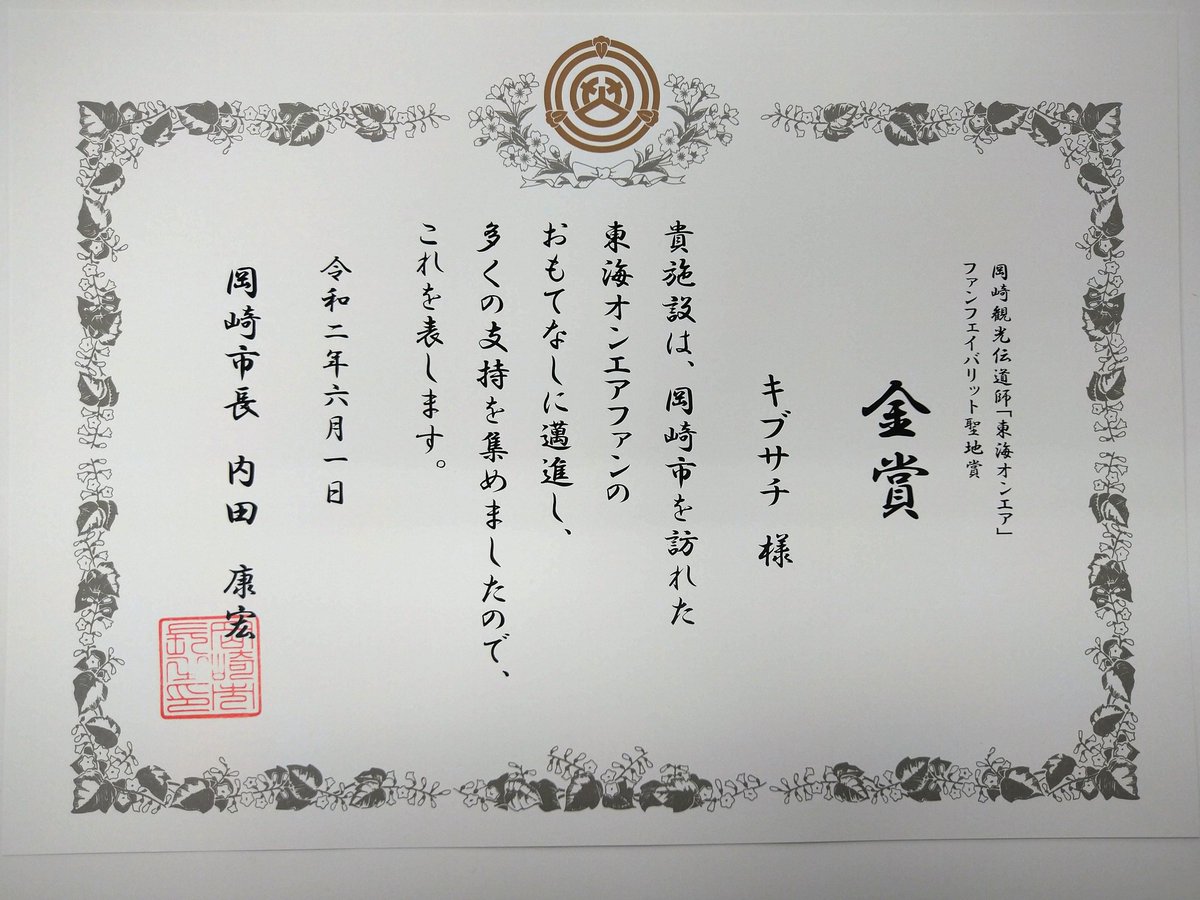 岡崎観光伝道師「東海オンエア」
ファンフェイバリット聖地賞
金賞
キブサチ 様
貴施設は、岡崎市を訪れた
東海オンエアファンの
おもてなしに邁進し、
多くの支持を集めましたので、
これを表します。
令和二年六月一日
岡崎市長 内田 康宏
岡崎市
長之印